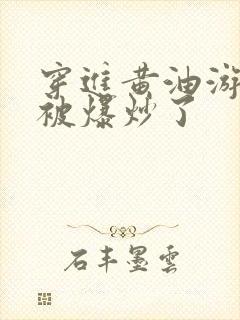 穿進黄油游
被爆炒了
石丰墨雲